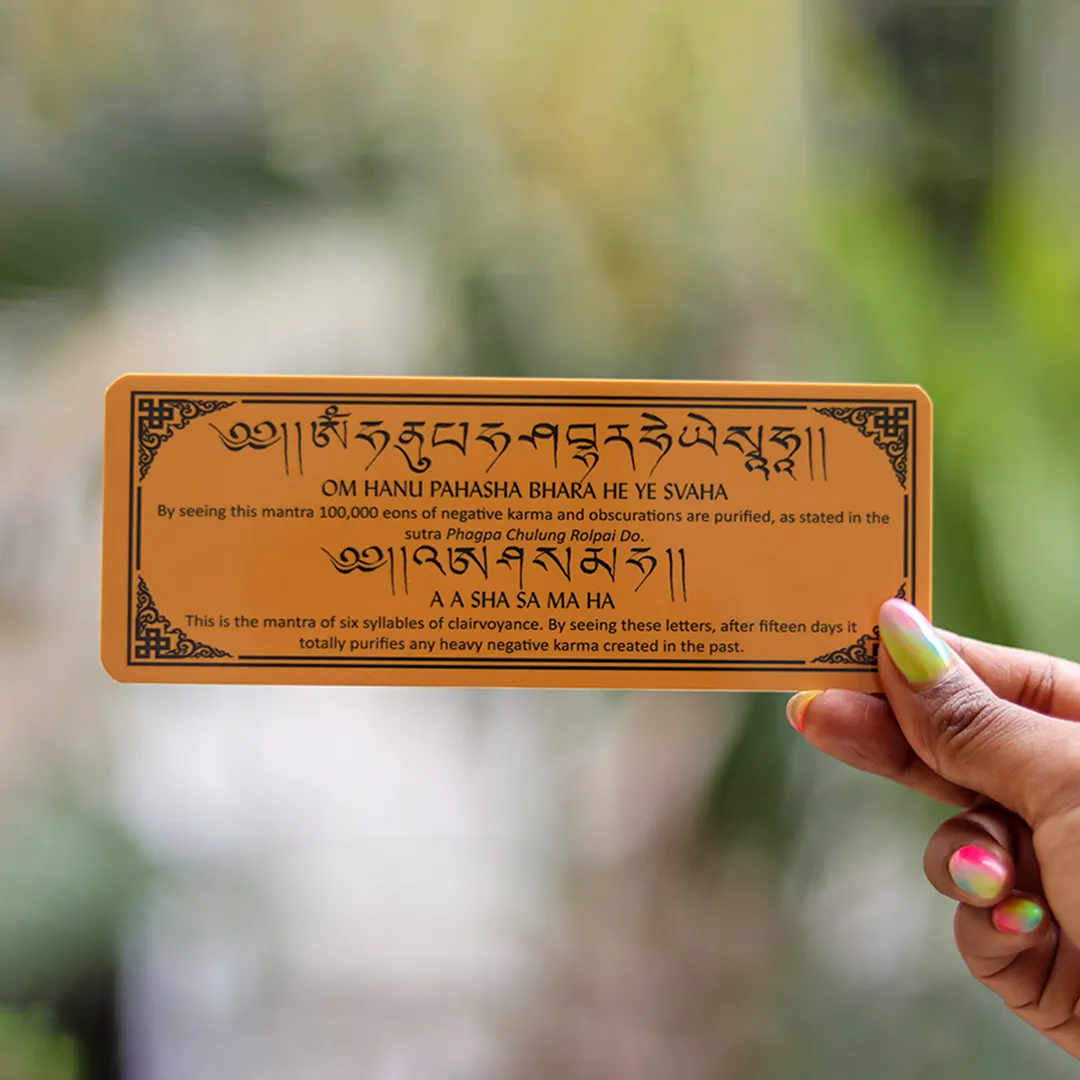 ༄༅།།ཨོཾ་ཧ་ནུ་པ་ཧ་ཤ་བྷ་ར་ཧེ་ཡེ་སྭཱ་ཧཱ།།
OM HANU PAHASHA BHARA HE YE SVAHA
By seeing this mantra 100,000 eons of negative karma and obscurations are purified, as stated in the
sutra Phagpa Chulung Rolpai Do.
༄༅།།འ་ཨ་ཤ་ས་མ་ཧ།།
A A SHA SA MA HA
This is the mantra of six syllables of clairvoyance. By seeing these letters, after fifteen days it
totally purifies any heavy negative karma created in the past.